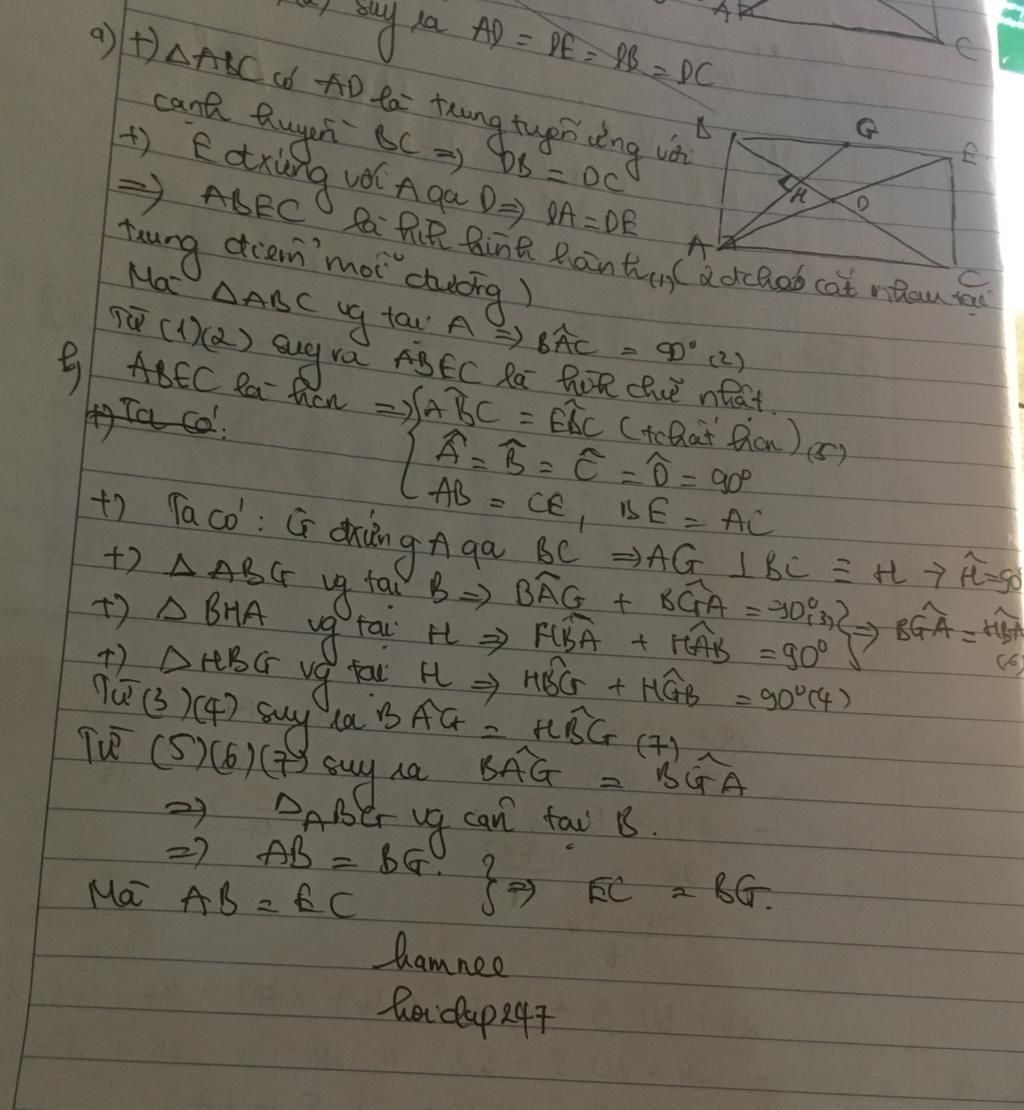 suy ra AD = DE = DB = DC
a) +) △ABC có AD là trung tuyến ứng với
cạnh huyền BC => DB = DC
+) E đxứng với A qa D => DA = DE
=> ABEC là hình bình hành (1) (2 đchéo cắt nhau tại
trung điểm mỗi đường)
Mà △ABC vg tại A => BÂC = 90° (2)
Từ (1)(2) suy ra ABEC là hình chữ nhật.
b) ABEC là hcn => { ABC = EBC (tchất hcn) (5)
+) Ta có:
Â = B̂ = Ĉ = D̂ = 90°
AB = CE, BE = AC
+) Ta có: G đxứng A qa BC => AG ⊥ BC ≡ H → Ĥ = 90°
+) △ ABG vg tại B => BÂG + BĜA = 90° (3) } => BĜA = HB̂A (6)
+) △ BHA vg tại H => HB̂A + HÂB = 90°
+) △ HBG vg tại H => HB̂G + HĜB = 90° (4)
Từ (3)(4) suy ra BÂG = HB̂G (7)
Từ (5)(6)(7) suy ra BÂG = BĜA
=> △ABG vg cân tại B.
=> AB = BG. } => EC = BG.
Mà AB = EC
hamnee
hoidap247
B G E
H D
A C
A C